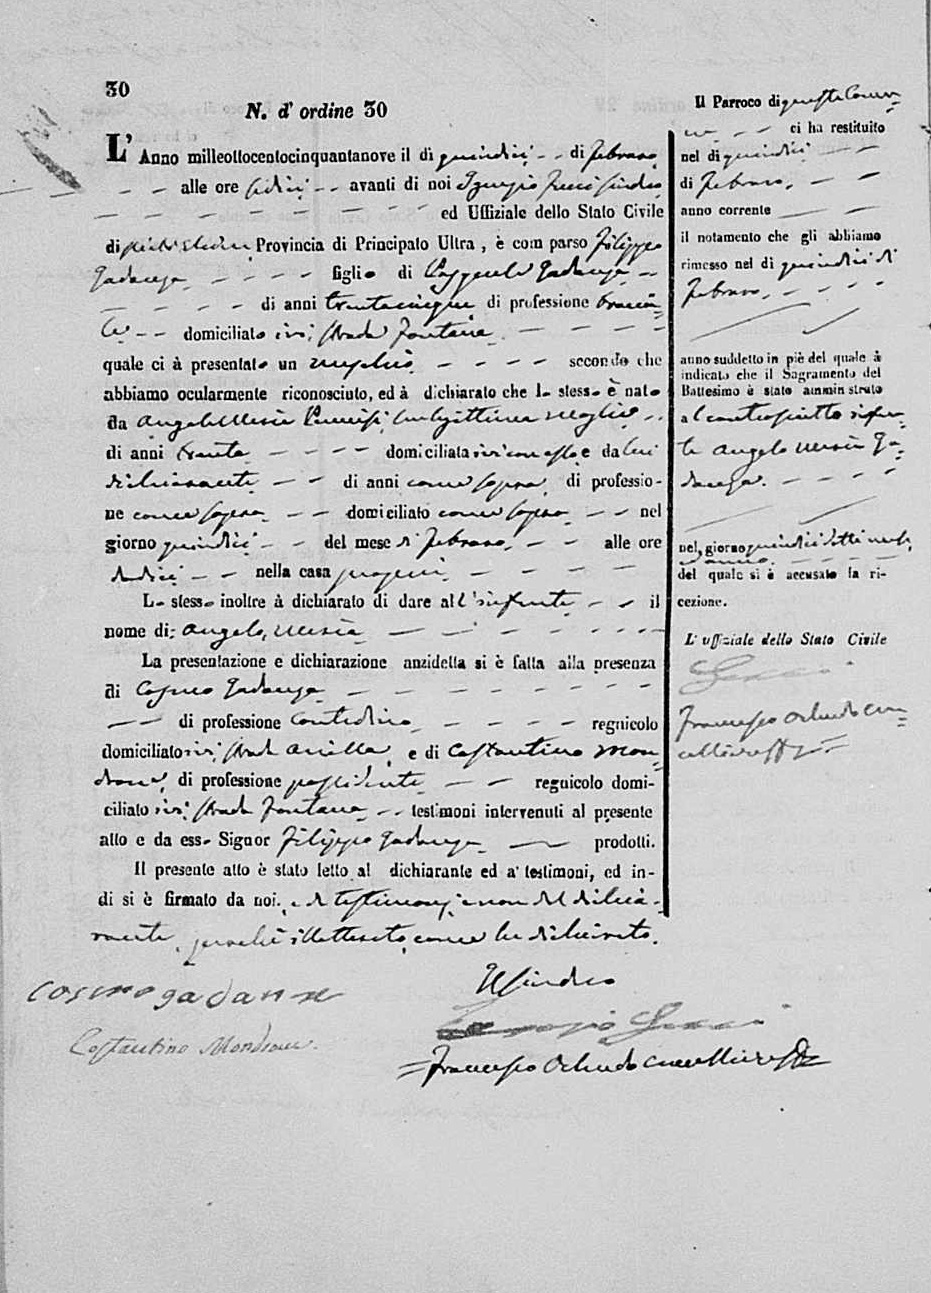 30
N. d' ordine 30
L' Anno millottocentocinquantanove il dì quindici di febraro
alle ore sedici avanti di noi Sindaco
ed Uffiziale dello Stato Civile
di Provincia di Principato Ultra, è com parso Filippo
Gadanza figlio di Gadanza
di anni trentacinque di professione braccia
le domiciliato ivi strada Fontana
quale ci à presentato un maschio secondo che
abbiamo ocularmente riconosciuto, ed à dichiarato che lo stesso è nato
da Angela Maria moglie
di anni trenta domiciliata ivi con esso e da lui
dichiarante di anni come sopra di professio-
ne come sopra domiciliato come sopra nel
giorno quindici del mese di febraro alle ore
dodici nella casa propria
Lo stesso inoltre à dichiarato di dare all'infante il
nome di: Angelo, Maria
La presentazione e dichiarazione anzidetta si è fatta alla presenza
di Cosmo Gadanza
di professione Contadino regnicolo
domiciliato ivi strada e di Costantino Mon
di professione possidente regnicolo domi-
ciliato ivi strada Fontana testimoni intervenuti al presente
atto e da esso Signor Filippo Gadanza prodotti.
Il presente atto è stato letto al dichiarante ed a' testimoni, ed in-
di si è firmato da noi, e da testimonj e non dal dichia-
rante, perchè illetterato come ha dichiarato.
Il Sindaco
Cosmo gadanza
Costantino
Francesco Orlando Cancelliere
Il Parroco di questo Comu
ne ci ha restituito
nel dì quindici
di Febraro
anno corrente
il notamento che gli abbiamo
rimesso nel dì quindici di
Febraro
anno suddetto in piè del quale à
indicato che il Sagramento del
Battesimo è stato amministrato
al controscritto infan
te Angelo Maria Ga
danza.
nel giorno quindici detto mese
ed anno
del quale si è accusato la ri-
cezione.
L' uffiziale dello Stato Civile
Francesco Orlando Can
celliere